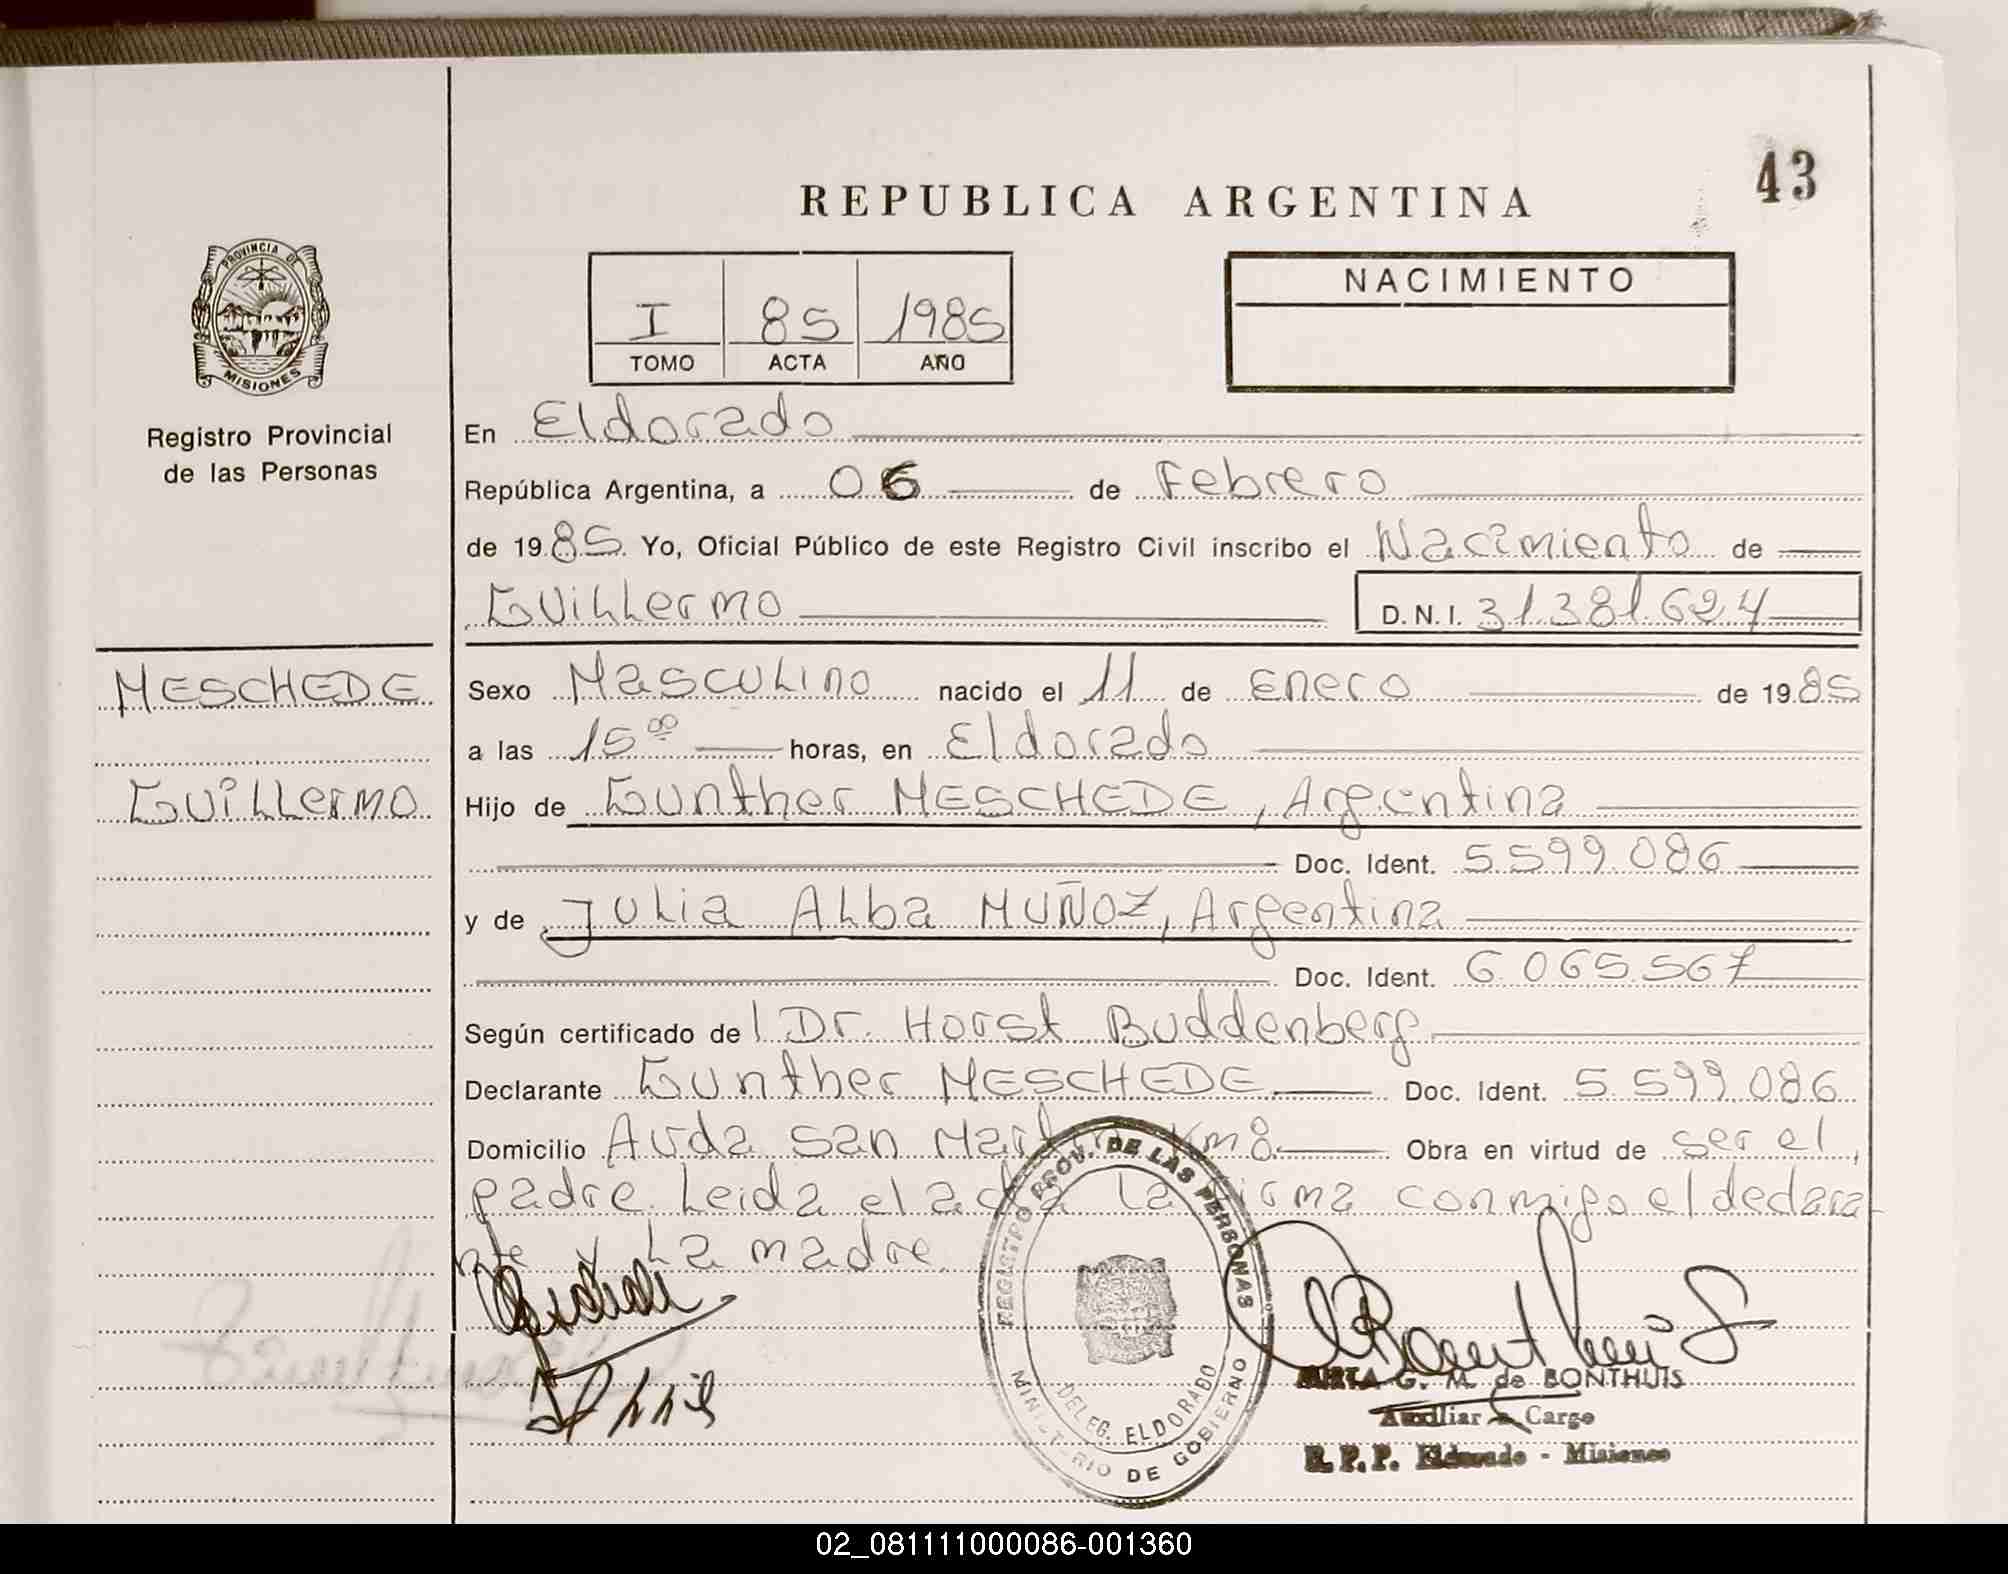 43
REPUBLICA ARGENTINA
PROVINCIA DE
MISIONES
Registro Provincial
de las Personas
I 85 1985
TOMO ACTA AÑO
NACIMIENTO
En Eldorado
República Argentina, a 06 de Febrero
de 1985 Yo, Oficial Público de este Registro Civil inscribo el Nacimiento de
Guillermo D.N.I. 31.381.624
MESCHEDE
Guillermo
Sexo Masculino nacido el 11 de Enero de 1985
a las 15⁰⁰ horas, en Eldorado
Hijo de Gunther MESCHEDE, Argentina
Doc. Ident. 5.599.086
y de Julia Alba MUÑOZ, Argentina
Doc. Ident. 6.065.567
Según certificado de Dr. Horst Buddenberg
Declarante Gunther MESCHEDE Doc. Ident. 5.599.086
Domicilio Avda San Martin Km 8. Obra en virtud de ser el
padre. Leida el acta la firma conmigo el declara-
nte y La madre
REGISTRO PROV. DE LAS PERSONAS
DELEG. ELDORADO
MINISTERIO DE GOBIERNO
MIRTA G. M. de BONTHUIS
Auxiliar a Cargo
R. P. P. Eldorado - Misiones
02_081111000086-001360